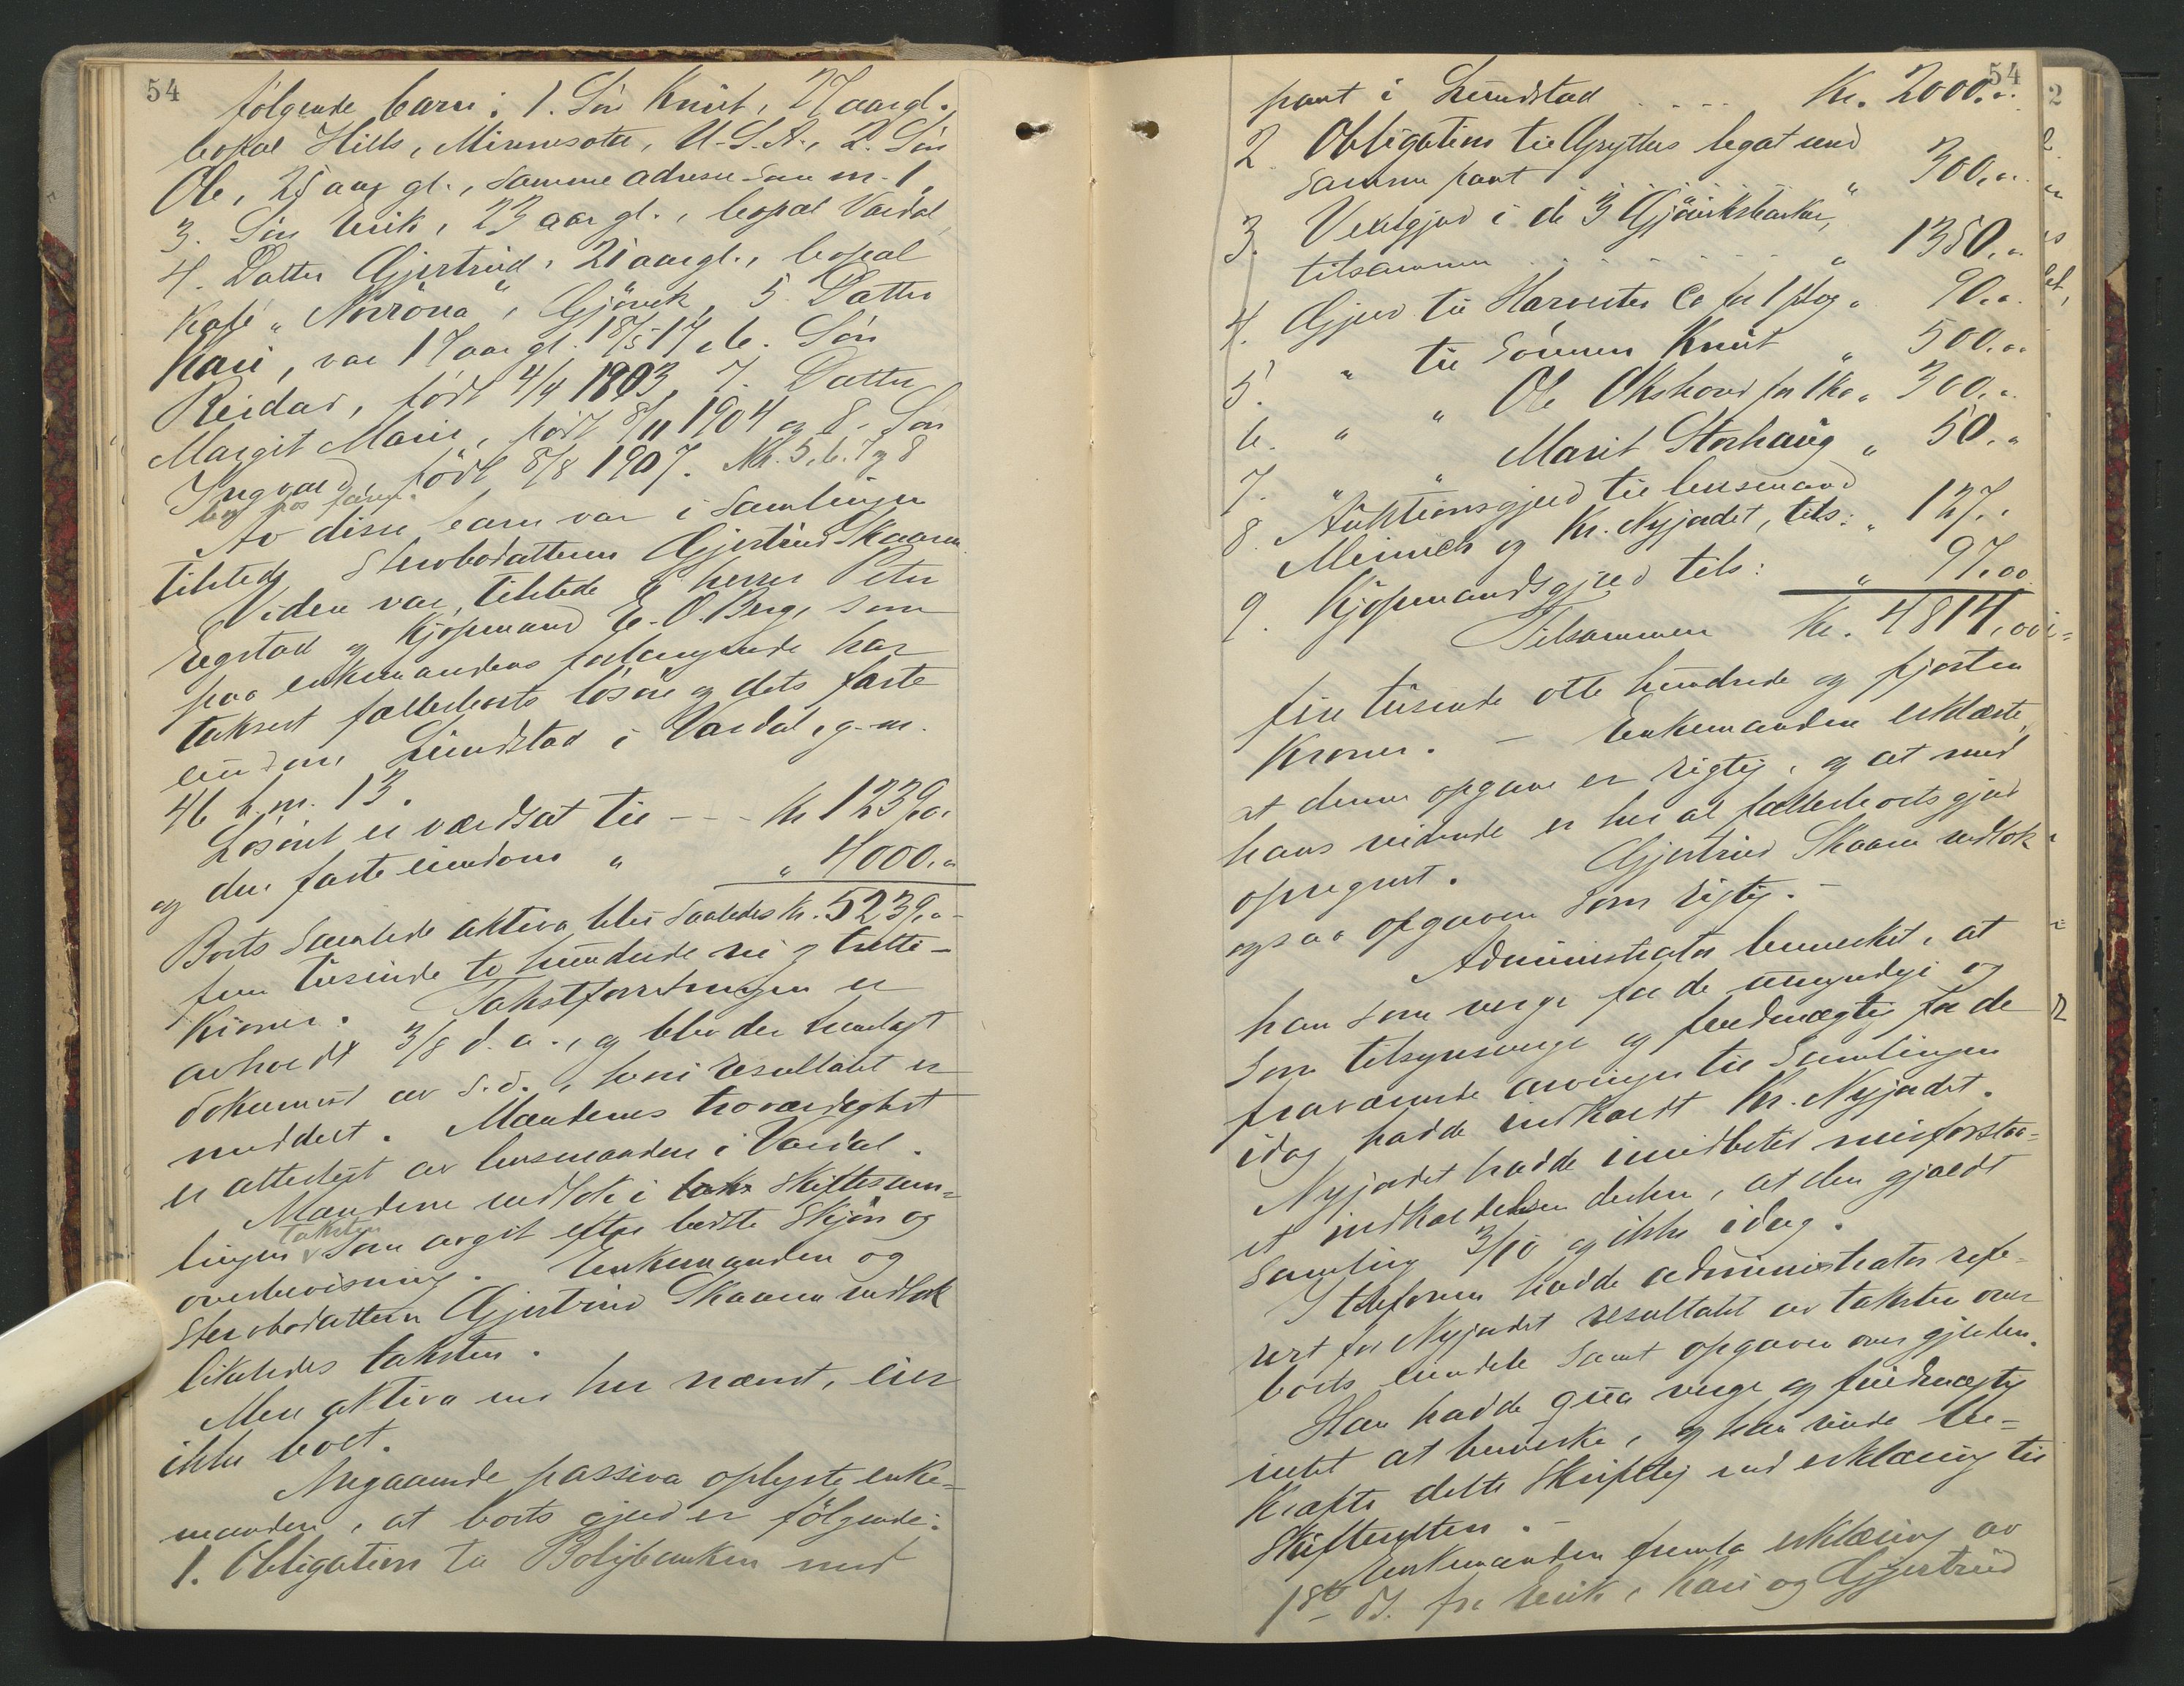 54
følgende barn: 1. Søn Knut, 27 aar gl.,
bopæl Hills, Minnesota, U.S.A., 2. Søn
Ole, 25 aar gl., samme adresse som nr. 1,
3. Søn Erik, 23 aar gl., bopæl Vardal,
4. Datter Gjertrud, 21 aar gl., bopæl
Kafé "Norrøna", Gjøvik, 5. Datter
Kari, var 17 aar gl. 18/5-14, 6. Søn
Reidar, født 4/4 1903, 7. Datter
Margit Marie, født 8/11 1904 og 8. Søn
Ingvard, født 8/8 1907. Nr. 5, 6, 7 og 8
bor hos faren.
Av disse barn var i samlingen
tilstede Stervbodatteren Gjertrud Skaarn.
Viden var tilstede herrer Peter
Engstad og Kjøpmand E. O. Berg, som
paa enkemandens forlangende har
taksert fællesboets løsøre og dets faste
eiendom Lundstad i Vardal, g.-nr.
46 b.nr. 13.
Løsøret er værdsat til - - - Kr 1239,00
og den faste eiendom " " 4000,00
Boets samlede aktiva blir saaledes Kr. 5239,00 -
fem tusinde to hundrede ni og tretti -
Kroner. Takstforretningen er
avholdt 3/8 d.a., og blev der fremlagt
dokument av s.d., hvori resultatet er
meddelt. Mændenes troværdighet
er attestert av lensmanden i Vardal.
Mændene vedtok i skiftesam=
lingen taksten som avgit efter bedste skjøn og
overbevisning. Enkemanden og
Stervbodatteren Gjertrud Skaarn vedtok
likeledes taksten.
Mere aktiva end her nævnt, eier
ikke boet.
Angaaende passiva oplyste enke=
manden, at boets gjæld er følgende:
1. Obligation til Boligbanken med
54
pant i Lundstad . . . . Kr. 2000,00
2. Obligation til Gryttes legat med
samme pant " 300,00
3. Vexelgjæld i de 3 Gjøviksbanker,
tilsammen . . . . . . . " 1350,00
4. Gjæld til Harvester Co for 1 plog " 90,00
5. " til sønnen Knut " 500,00
6. " " Ole Okshovd for 1 ko " 300,00
7. " " Marit Storhaug " 50,00
8. Auktionsgjæld til lensmand
Meinich og Kr. Nyjordet, tils: " 127,00
9. Kjøpmandsgjæld tils: " 97,00
Tilsammen Kr. 4814,00
fire tusinde otte hundrede og fjorten
Kroner. - Enkemanden erklærte,
at denne opgave er rigtig, og at med
hans vidende er her al fællesboets gjæld
opregnet. Gjertrud Skaarn vedtok
ogsaa opgaven som rigtig. -
Administrator bemerket, at
han som verge for de umyndige og
som tilsynsverge og fuldmægtig for de
fraværende arvinger til samlingen
idag hadde indkaldt Kr. Nyjordet.
Nyjordet hadde imidlertid misforstaa=
et indkaldelsen derhen, at den gjaldt
samling 3/10 og ikke idag.
I telefonen hadde administrator refe=
rert for Nyjordet resultatet av taksten over
boets eiendele samt opgaven over gjælden.
Han hadde qua verge og fuldmægtig
intet at bemerke, og han vilde be=
kræfte dette skriftlig ved erklæring til
Skifteretten. -
Enkemanden fremla erklæring av
18de ds. fra Erik, Kari og Gjertrud